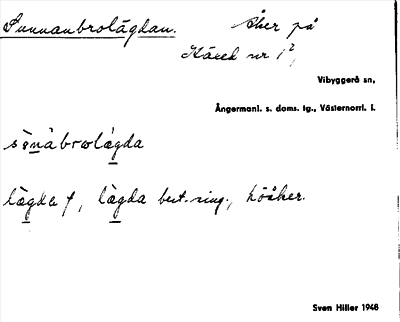 Sunnanbrolägdan. Åker på
Häxed nr 1²,
Vibyggerå sn,
Ångermanl. s. doms. tg., Västernorrl. l.
lägda f, lägda best. sing., höåker.
Sven Hiller 1948